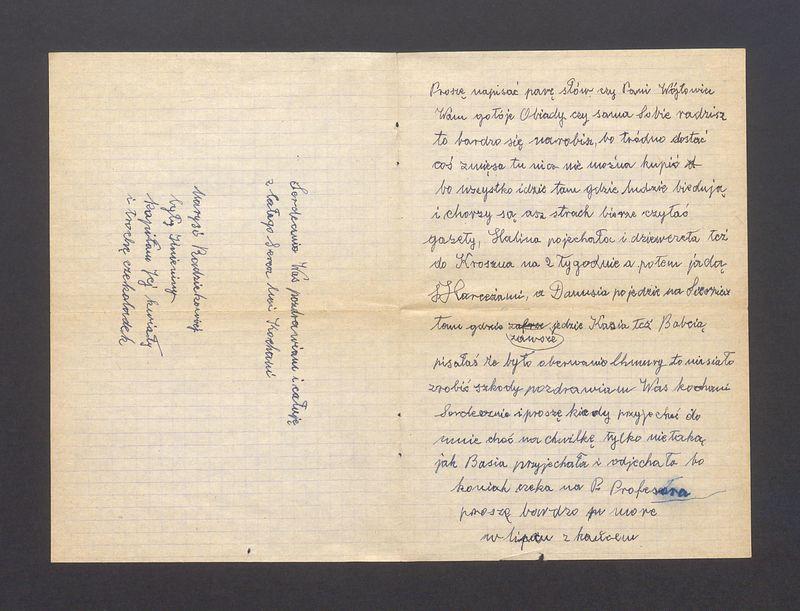 Proszę napisać parę słów czy Pani Wójtowicz
Wam gotóje Obiady czy sama Sobie radzisz
to bardzo się narobisz, bo tródno dostać
coś zmięsa tu nica nie można kupić
bo wszystko idzie tam gdzie ludzie biedują
i chorzy są, asz strach bierze czytać
gazety, Halina pojechała i dziewczeta też
do Krosna na 2 tygodnie a potem jadą
z Harceżami, a Danusia pojedzie na
tam gdzie jedzie Kasia też Babcią
zawsze
pisałaś że było oberwanie Chmury to niesiało
zrobić szkody pozdrawiam Was kochani
Serdecznie i proszę kiedy przyjechać do
mnie choć na chwilkę tylko nie taką
jak Basia przyjechała i odjechała bo
koniak czeka na P. Profesora
proszę bardzo
w lipcu z
Serdecznie Was pozdrawiam i całuję
z całego Serca Kochani
Marysi
były Imieniny
kapitan Jej kwiaty
i trochę czekoladek